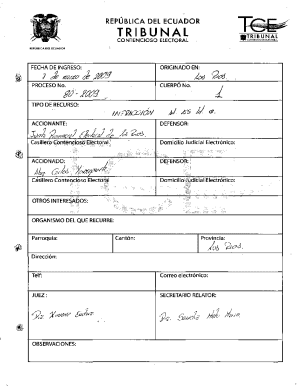 REPÚBLICA DEL ECUADOR
TRIBUNAL
CONTENCIOSO ELECTORAL
REPUBLICA DEL ECUADOR
TCE
TRIBUNAL
FECHA DE INGRESO:
de 2009
ORIGINADO EN:
Los Rios
PROCESO No.
80-2009
CUERPO No.
1
TIPO DE RECURSO:
INFRACCION
ACCIONANTE:
Junta Provincial Electoral de Los Rios
DEFENSOR:
Casillero Contencioso Electoral
Domicilio Judicial Electrónico:
ACCIONADO:
Carlos
DEFENSOR:
Casillero Contencioso Electoral
Domicilio Judicial Electrónico:
OTROS INTERESADOS:
ORGANISMO DEL QUE RECURRE:
Parroquia:
Cantón:
Provincia:
Los Rios
Dirección:
Telf:
Correo electrónico:
JUEZ:
SECRETARIO RELATOR:
Dra.
OBSERVACIONES: